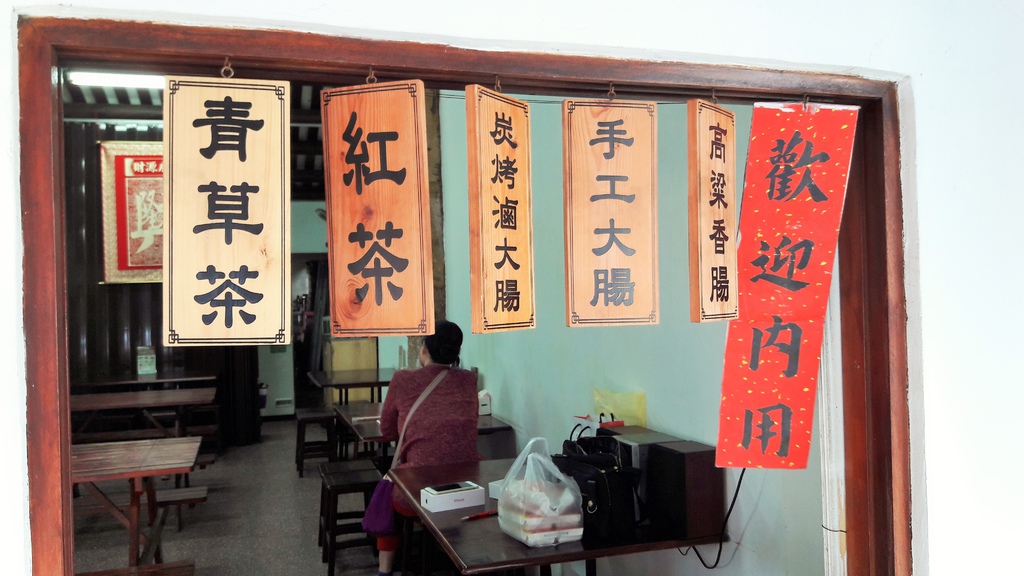 青草茶
紅茶
炭烤滷大腸
手工大腸
高粱香腸
歡迎內用
財源
興